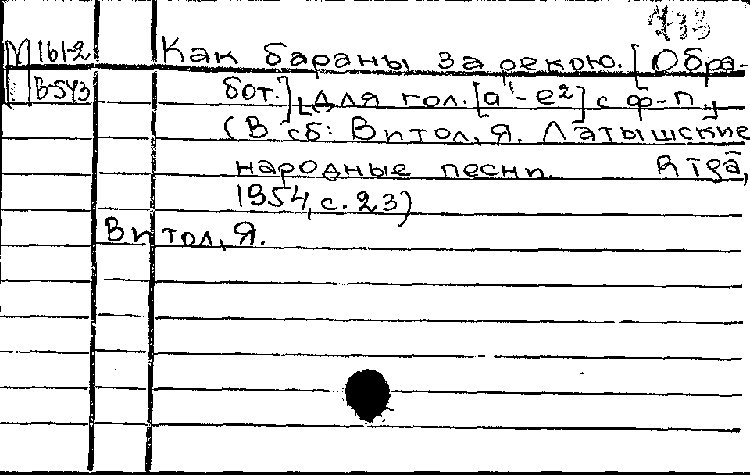 733
М 161-2 Как бараны за рекою. [Обра-
В-543 бот.] для гол. [a¹-e²] с ф-п.
(В сб: Витол, Я. Латышские
народные песни. Rīgā,
1954, с. 23)
Витол, Я.